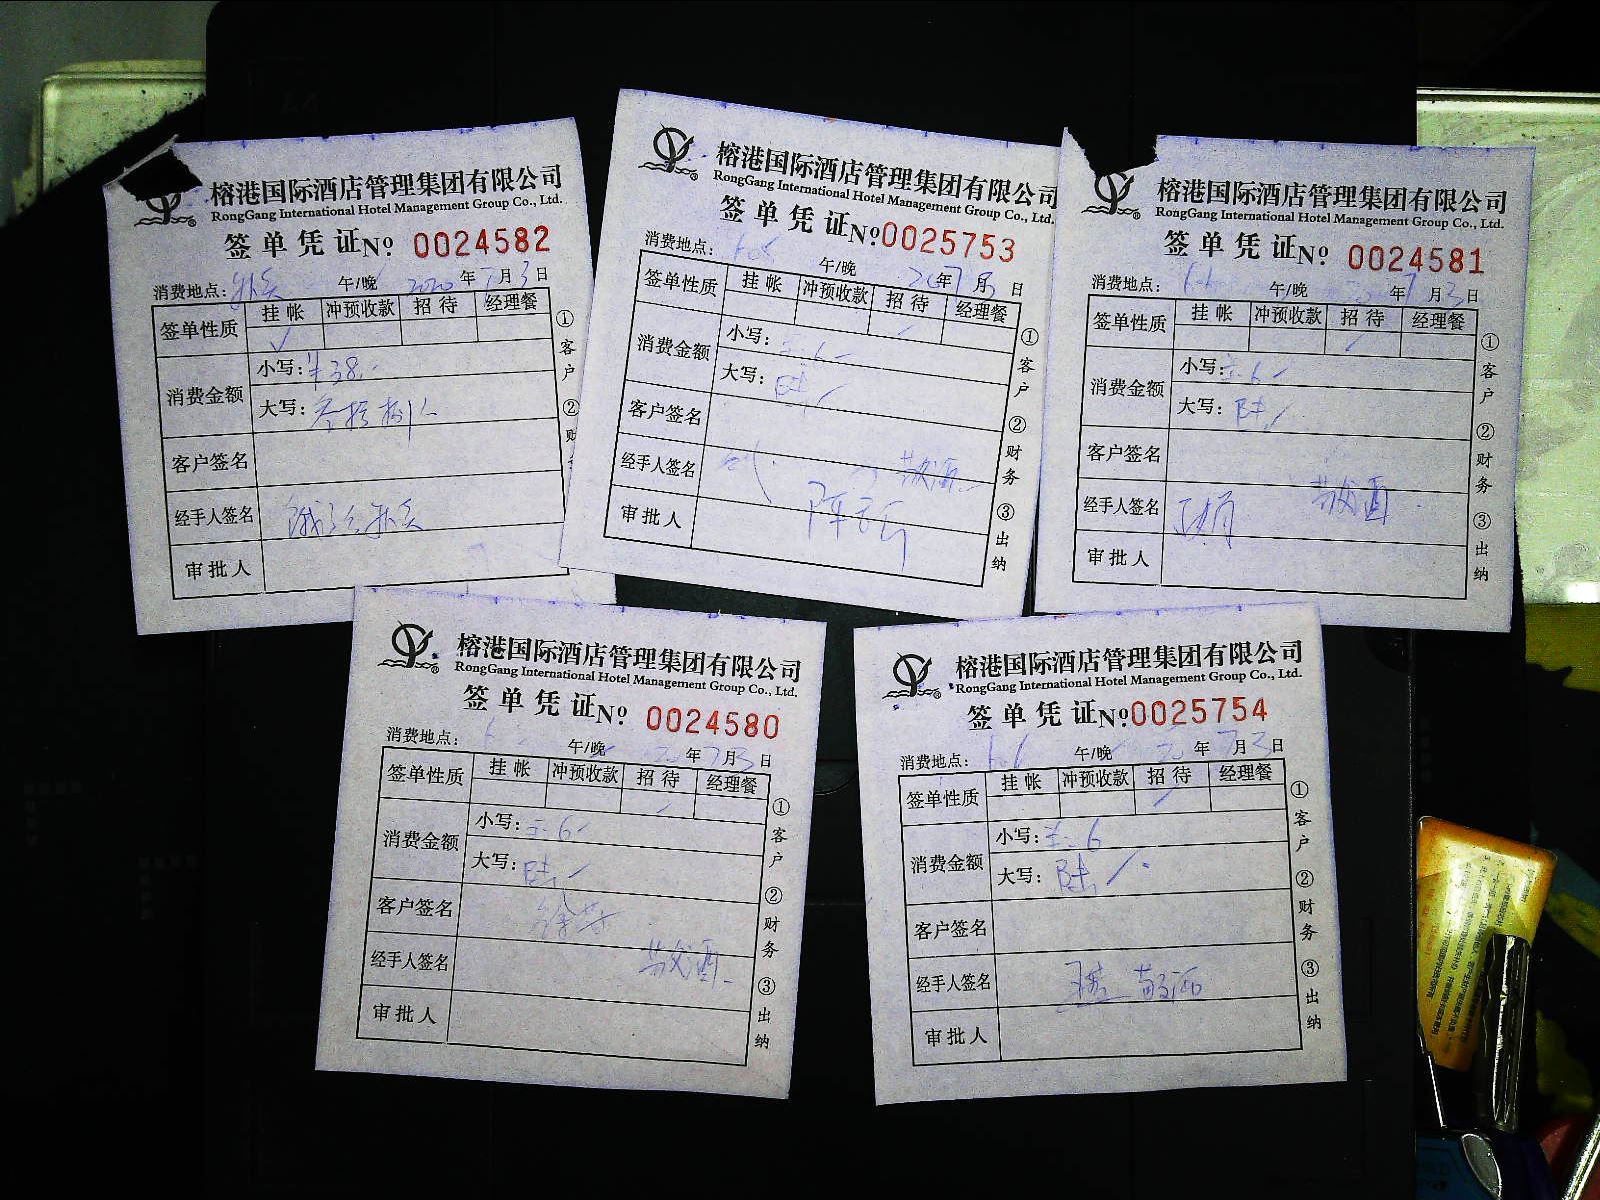 榕港国际酒店管理集团有限公司
RongGang International Hotel Management Group Co., Ltd.
签单凭证 № 0024582
消费地点: 午/晚 2020年7月3日
签单性质 挂帐 冲预收款 招待 经理餐
✓
消费金额 小写: ¥38.-
大写:
客户签名
经手人签名
审批人
①客户 ②财
榕港国际酒店管理集团有限公司
RongGang International Hotel Management Group Co., Ltd.
签单凭证 № 0025753
消费地点: 午/晚 年7月3日
签单性质 挂帐 冲预收款 招待 经理餐
消费金额 小写: 6-
大写: 陆
客户签名
经手人签名
审批人
①客户 ②财务 ③出纳
榕港国际酒店管理集团有限公司
RongGang International Hotel Management Group Co., Ltd.
签单凭证 № 0024581
消费地点: 午/晚 年7月3日
签单性质 挂帐 冲预收款 招待 经理餐
消费金额 小写: 6-
大写: 陆
客户签名
经手人签名
审批人
①客户 ②财务 ③出纳
榕港国际酒店管理集团有限公司
RongGang International Hotel Management Group Co., Ltd.
签单凭证 № 0024580
消费地点: 午/晚 年7月3日
签单性质 挂帐 冲预收款 招待 经理餐
消费金额 小写: 6-
大写: 陆
客户签名
经手人签名
审批人
①客户 ②财务 ③出纳
榕港国际酒店管理集团有限公司
RongGang International Hotel Management Group Co., Ltd.
签单凭证 № 0025754
消费地点: 606 午/晚 年7月3日
签单性质 挂帐 冲预收款 招待 经理餐
消费金额 小写: 6
大写: 陆
客户签名
经手人签名
审批人
①客户 ②财务 ③出纳